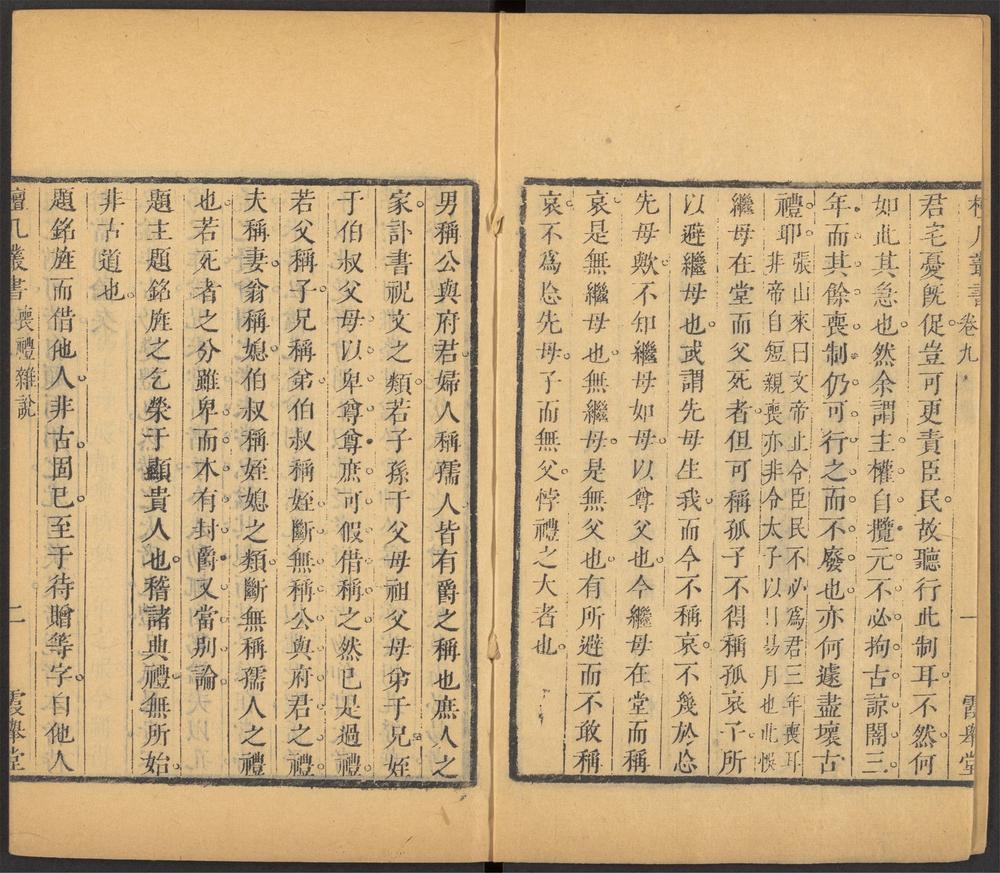 檀几叢書 卷九 一 霞舉堂
君宅憂旣促豈可更責臣民故聽行此制耳不然何
如此其急也然余謂主權自攬元不必拘古諒闇三
年而其餘喪制仍可行之而不廢也亦何遽盡壞古
禮耶張山來曰文帝止令臣民不必爲君三年喪耳
非帝自短親喪亦非令太子以日易月也此悞
繼母在堂而父死者但可稱孤子不得稱孤哀子所
以避繼母也或謂先母生我而今不稱哀不幾於忘
先母歟不知繼母如母以尊父也今繼母在堂而稱
哀是無繼母也無繼母是無父也有所避而不敢稱
哀不爲忘先母子而無父悖禮之大者也
男稱公與府君婦人稱孺人皆有爵之稱也庶人之
家訃書祝文之類若子孫于父母祖父母弟于兄姪
于伯叔父母以卑尊尊庶可假借稱之然已是過禮
若父稱子兄稱弟伯叔稱姪斷無稱公與府君之禮
夫稱妻翁稱媳伯叔稱姪媳之類斷無稱孺人之禮
也若死者之分雖卑而本有封爵又當別論
題主題銘旌之乞榮于顯貴人也稽諸典禮無所始
非古道也
題銘旌而借他人非古固已至于待贈等字自他人
檀几叢書 喪禮雜說 二 霞舉堂